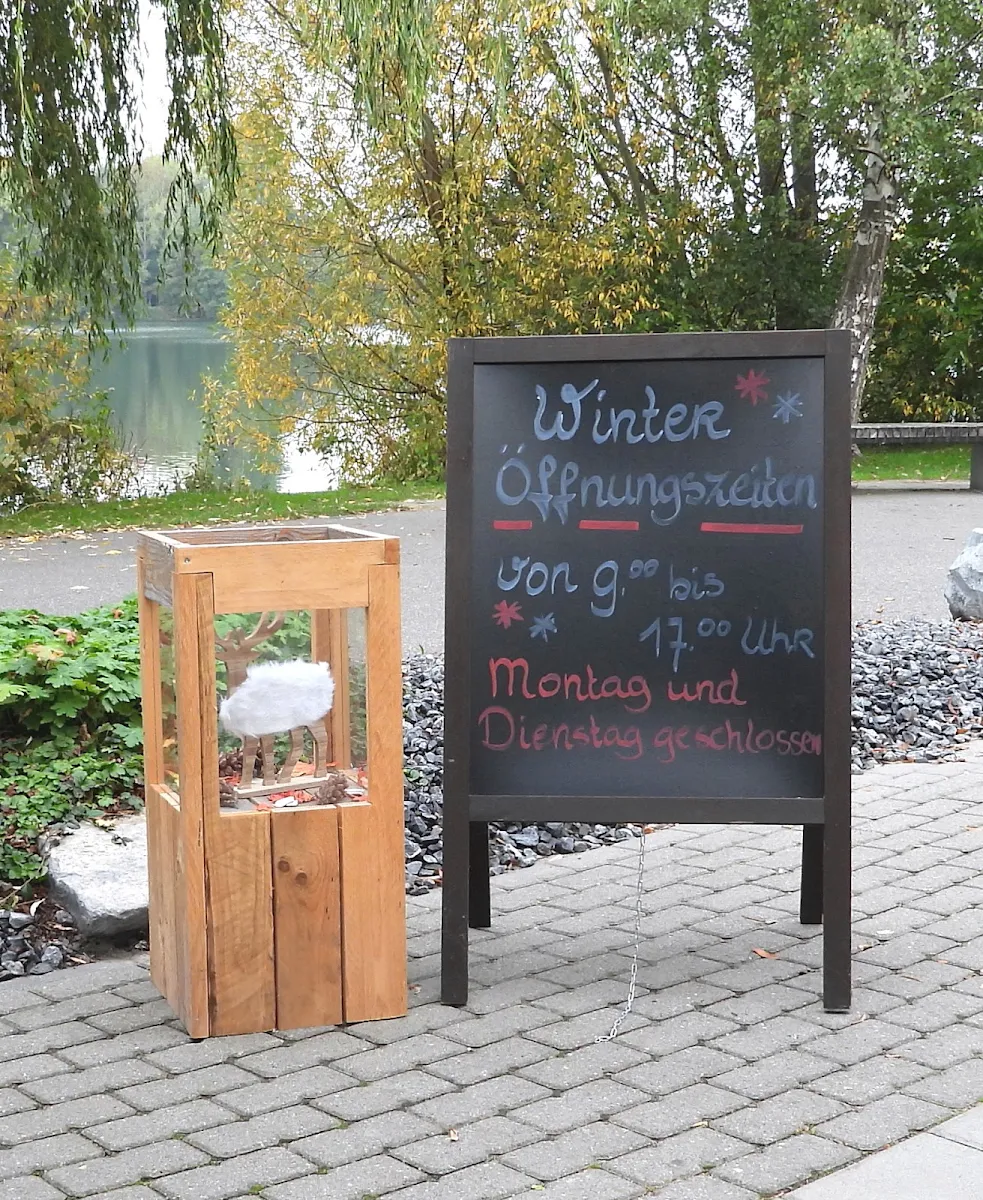 Winter
Öffnungszeiten
von 9.⁰⁰ bis
17.⁰⁰ Uhr
Montag und
Dienstag geschlossen